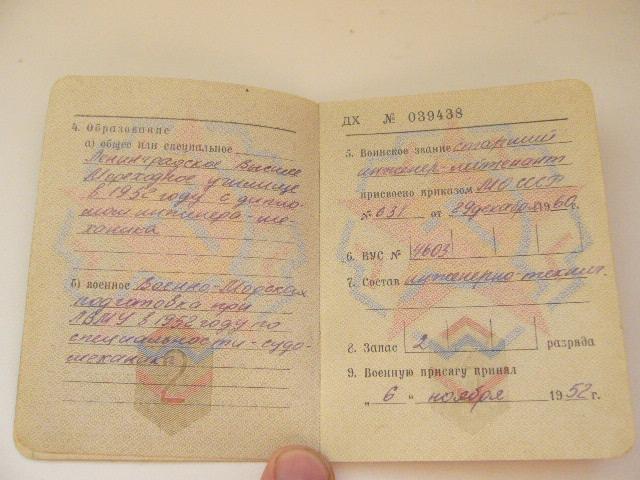 4. Образование
а) общее или специальное
Ленинградское Высшее
Мореходное училище
в 1952 году с дипло-
мом инженера-ме-
ханика
б) военное Военно-Морская
подготовка при
ЛВМУ в 1952 году по
специальности-судо-
механик
2
ДХ № 039438
5. Воинское звание старший
инженер-лейтенант
присвоено приказом МО СССР
№ 031 от 29 декабря 1960г.
6. ВУС № 4603
7. Состав инженерно-технич.
8. Запас 2 разряда
9. Военную присягу принял
„ 6 " ноября 1952 г.